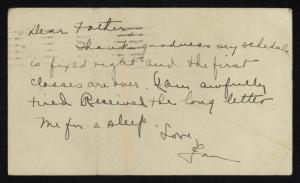 Dear Father
Thank goodness my schedule
is fixed right and the first
classes are over. I am awfully
tired Received the long letter
Me for a sleep. Love,